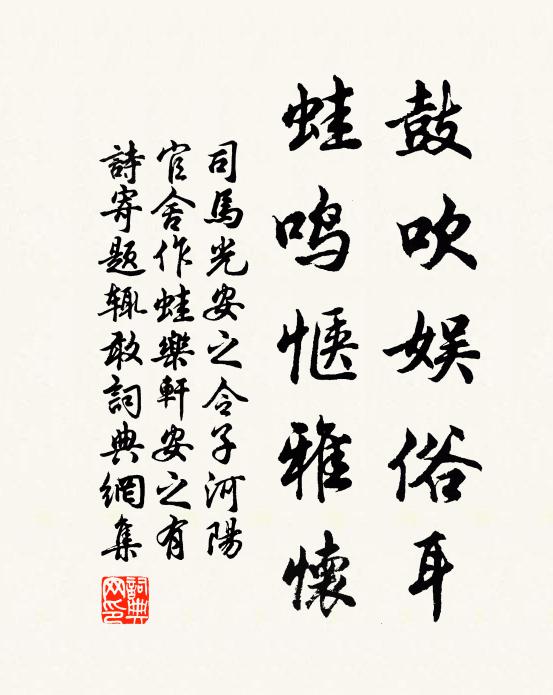 鼓吹娱俗耳
蛙鸣惬雅懷
司馬光安之令子河陽
官舍作蛙樂軒安之有
詩寄题辄敢詞典網集
詞典网印